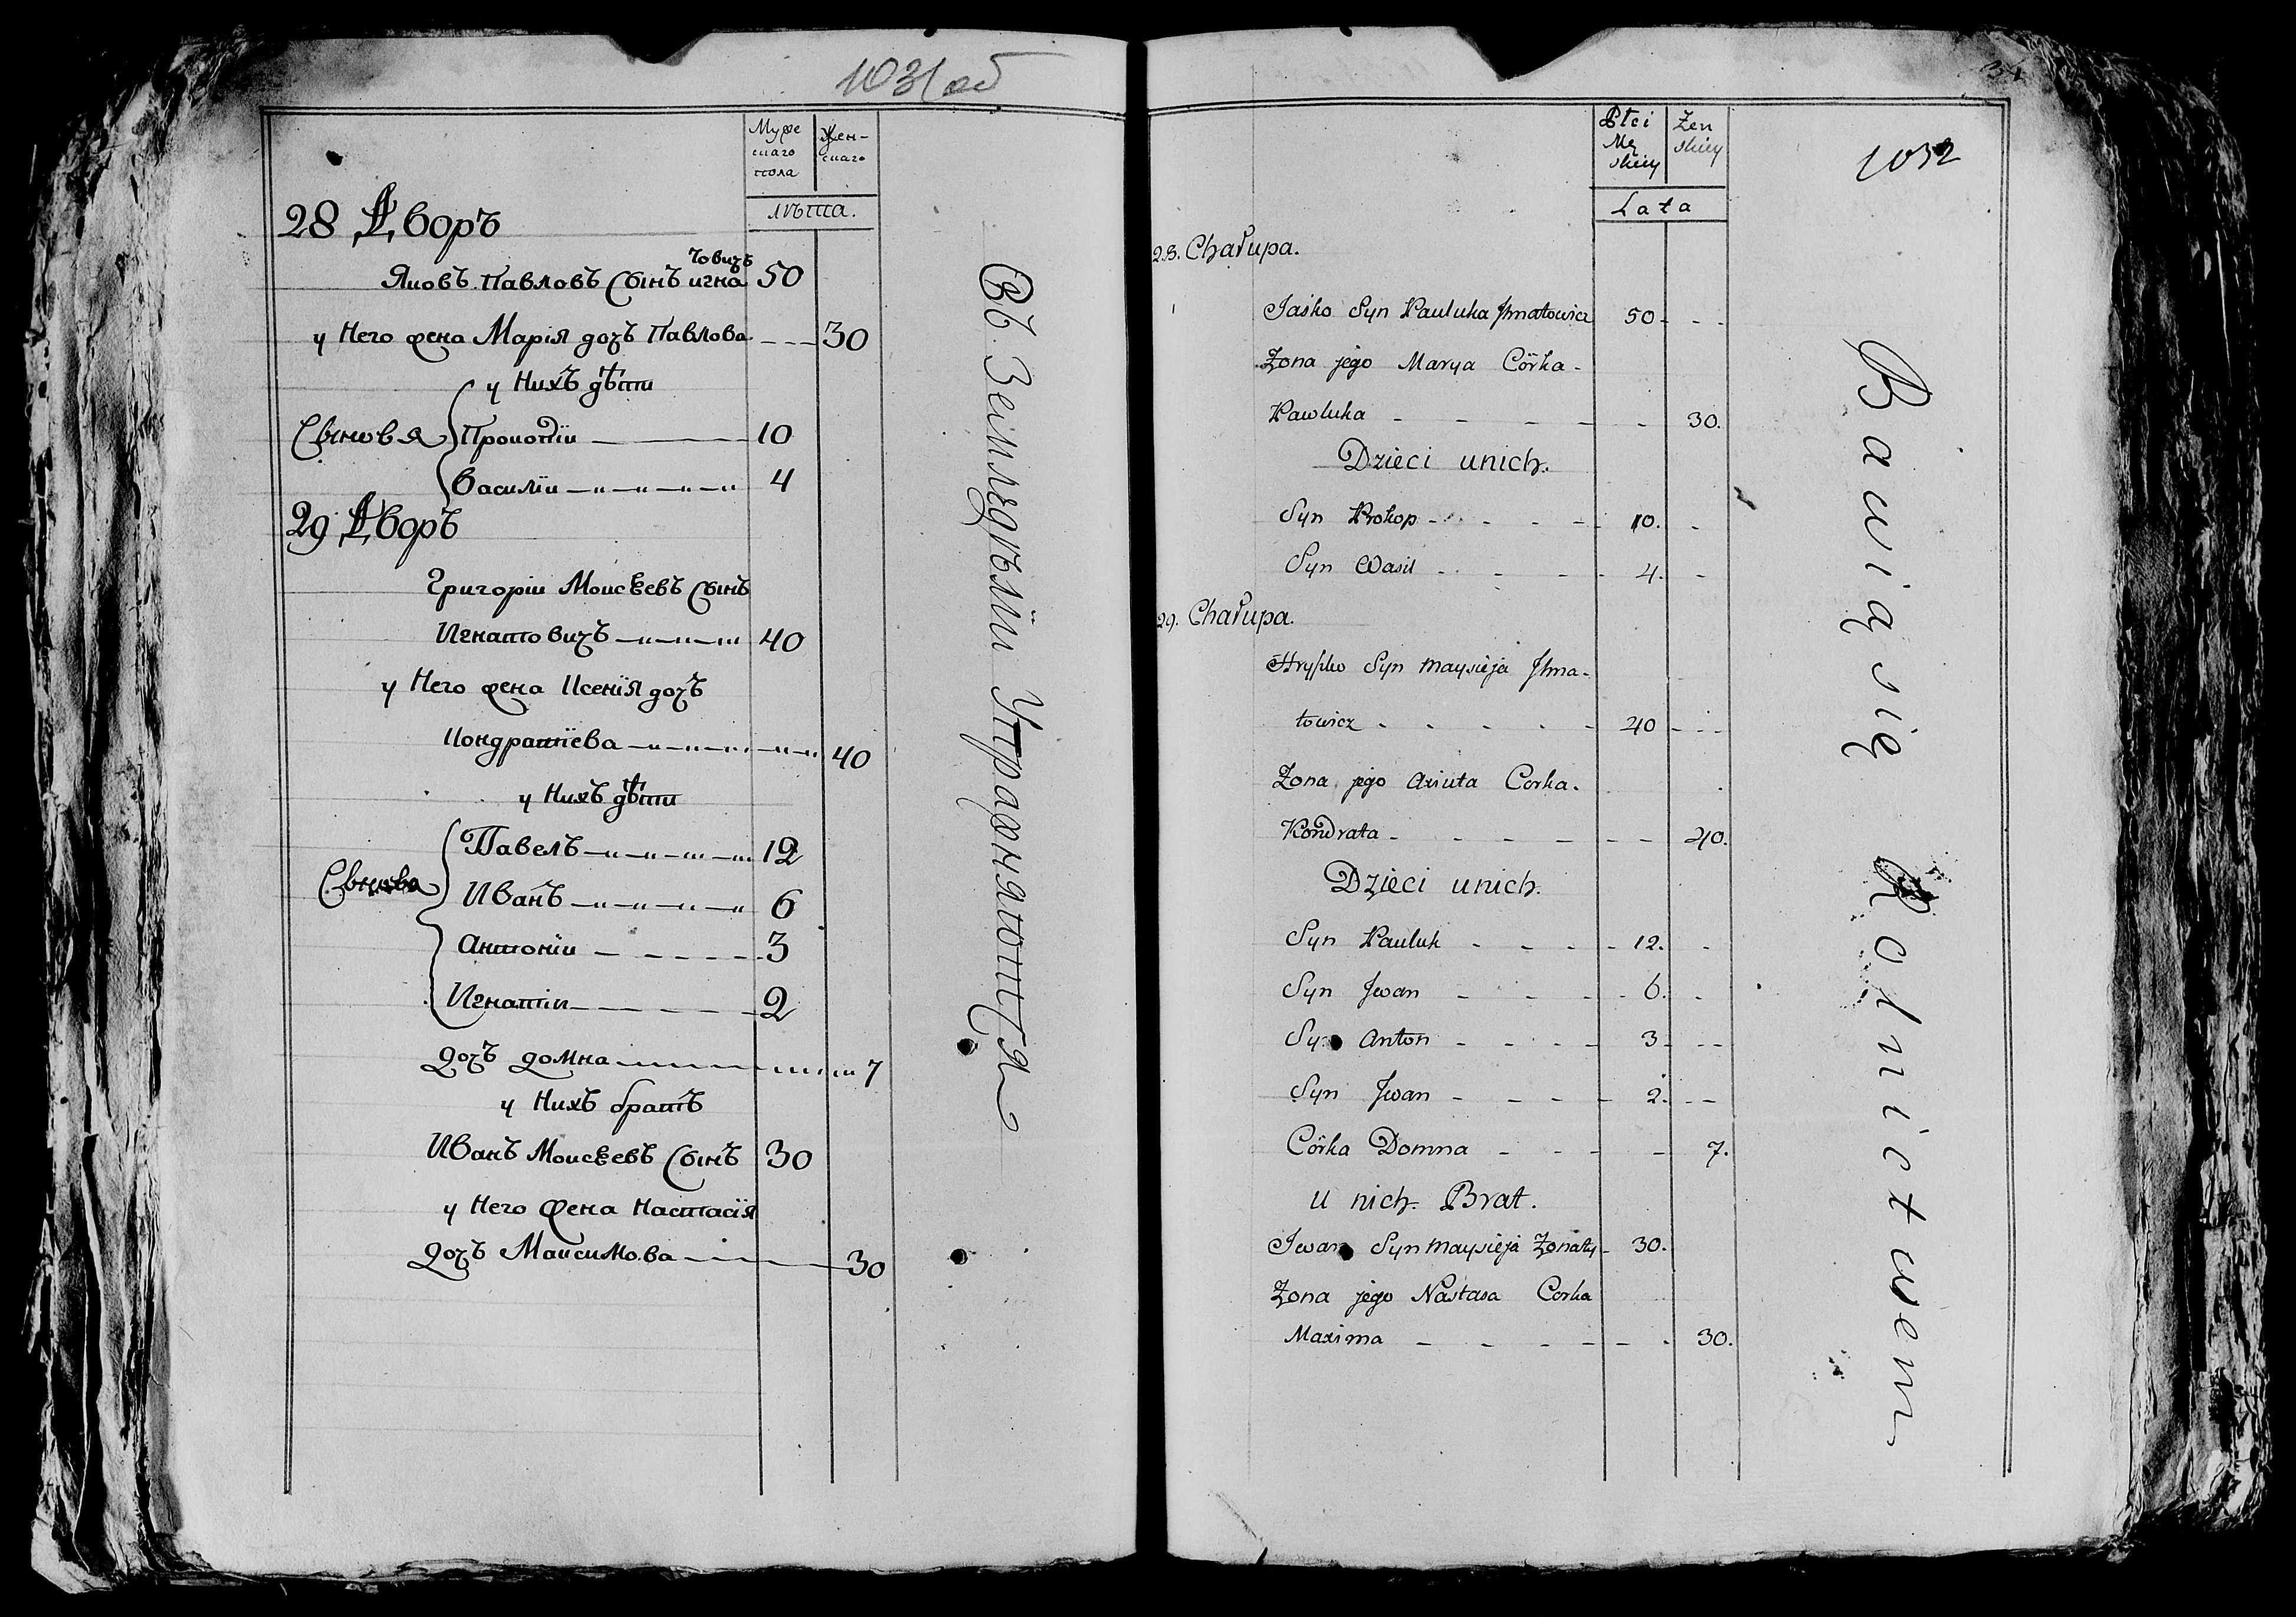 1031 об
Муже
скаго
пола
Жен-
скаго
лѣта.
28 Дворъ
товичъ
Яковъ Павловъ Сынъ игна 50
у Него жена Марія дочъ Павлова 30
у Нихъ дѣти
Сыновя Прокопіи 10
Василіи 4
29 Дворъ
Григоріи Моисѣевъ Сынъ
Игнатовичъ 40
у Него жена Ксенія дочъ
Кондратіева 40
у Нихъ дѣти
Павелъ 12
Сынова
Иванъ 6
Антоніи 3
Игнатіи 2
Дочъ Домна 7
у Нихъ братъ
Иванъ Моисѣевъ Сынъ 30
у Него Жена Настасія
Дочъ Максимова 30
Въ Земледѣліи Упражняются
1032
Płci
Mę
skiey
Zen
skiey
Lata
28. Chałupa.
Jaśko Syn Pauluka Jhnatowicz 50
Zona jego Marya Córka
Pawluka 30.
Dzieci unich.
Syn Prokop 10.
Syn Wasil 4.
29. Chałupa.
Hryszko Syn Maysieja Jhna-
towicz 40
Zona jego Axiuta Corka.
Kondrata 40.
Dzieci unich.
Syn Pauluk 12.
Syn Jwan 6.
Syn Anton 3
Syn Jwan 2.
Córka Domna 7.
U nich Brat.
Iwan Syn Maysieja Zonaty 30.
Zona jego Nastasa Corka
Maxima 30.
Bawią się Rolnictwem